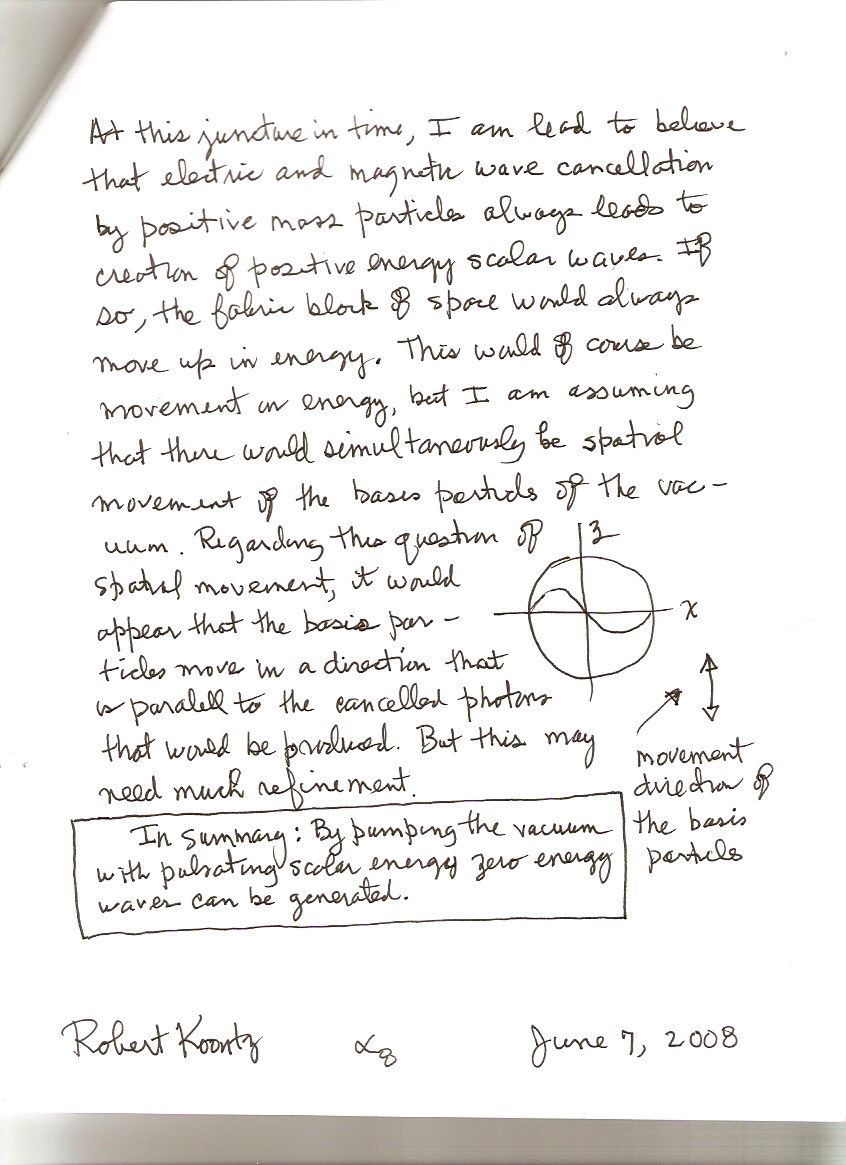 At this juncture in time, I am lead to believe
that electric and magnetic wave cancellation
by positive mass particles always leads to
creation of positive energy scalar waves. If
so, the fabric block of space would always
move up in energy. This would of course be
movement in energy, but I am assuming
that there would simultaneously be spatial
movement of the basis particles of the vac-
uum. Regarding this question of
spatial movement, it would
appear that the basis par-
ticles move in a direction that
is paralell to the cancelled photons
that would be produced. But this may
need much refinement.
z
x
movement
direction of
the basis
particles
In summary: By pumping the vacuum
with pulsating scalar energy zero energy
waves can be generated.
Robert Koontz α8 June 7, 2008